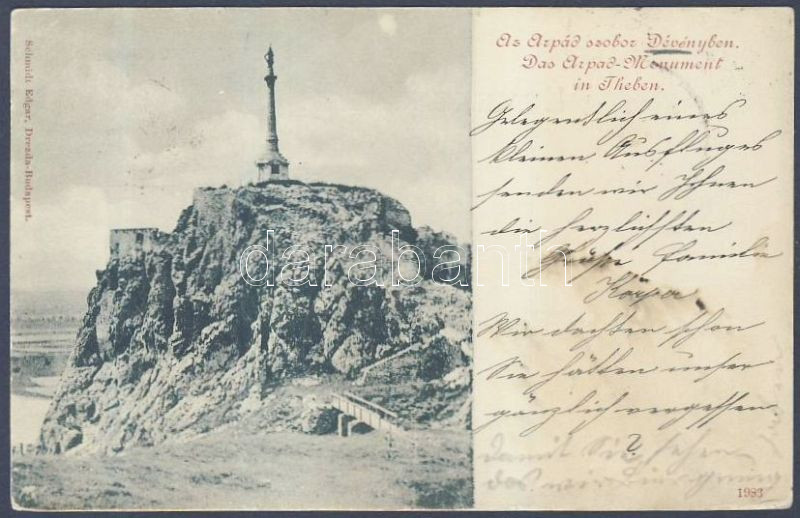 Az Arpád szobor Dévényben.
Das Arpad-Monument
in Theben.
Schmidt Edgar, Drezda-Budapest.
Gelegentlich eines
kleinen Ausfluges
senden wir Ihnen
die herzlichsten
Grüße Familie
Wir dachten schon
Sie hätten unser
gänzlich vergessen
?
damit Sie sehen
das wir
1983
darabanth